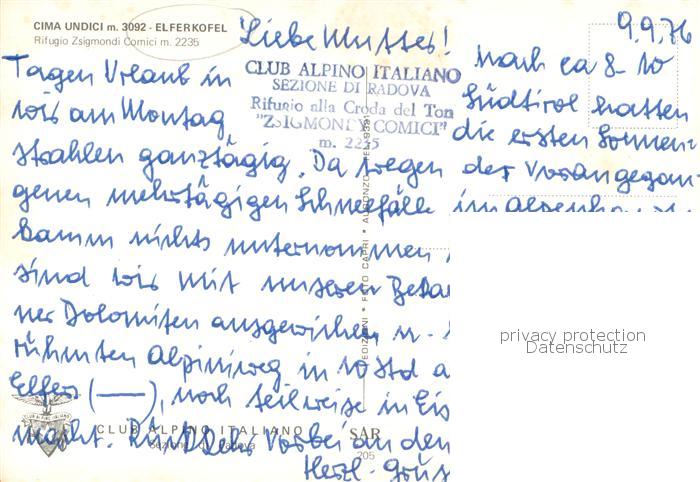 CIMA UNDICI m. 3092 - ELFERKOFEL
Rifugio Zsigmondi Comici m. 2235
9.9.76
Liebe Mutter!
CLUB ALPINO ITALIANO
SEZIONE DI PADOVA
Rifugio alla Croda dei Toni
"ZSIGMONDY COMICI"
m. 2235
nach ca 8-10
Tagen Urlaub in Südtirol hatten
wir am Montag die ersten Sonnen=
strahlen ganztägig. Da wegen der vorangegan-
genen mehrtägigen Schneefälle im
kaum nichts unternommen
sind wir mit unseren
ner Dolomiten ausgewichen u.
rühmten Alpiniweg in 10 Std
Elfer (—), noch teilweise in Eis
macht. vorbei an den
Herzl. Grüs
EDIZIONI * FOTO CAPRI * AURONZO
CLUB ALPINO ITALIANO
Sezione di Padova
SAR
205
privacy protection
Datenschutz